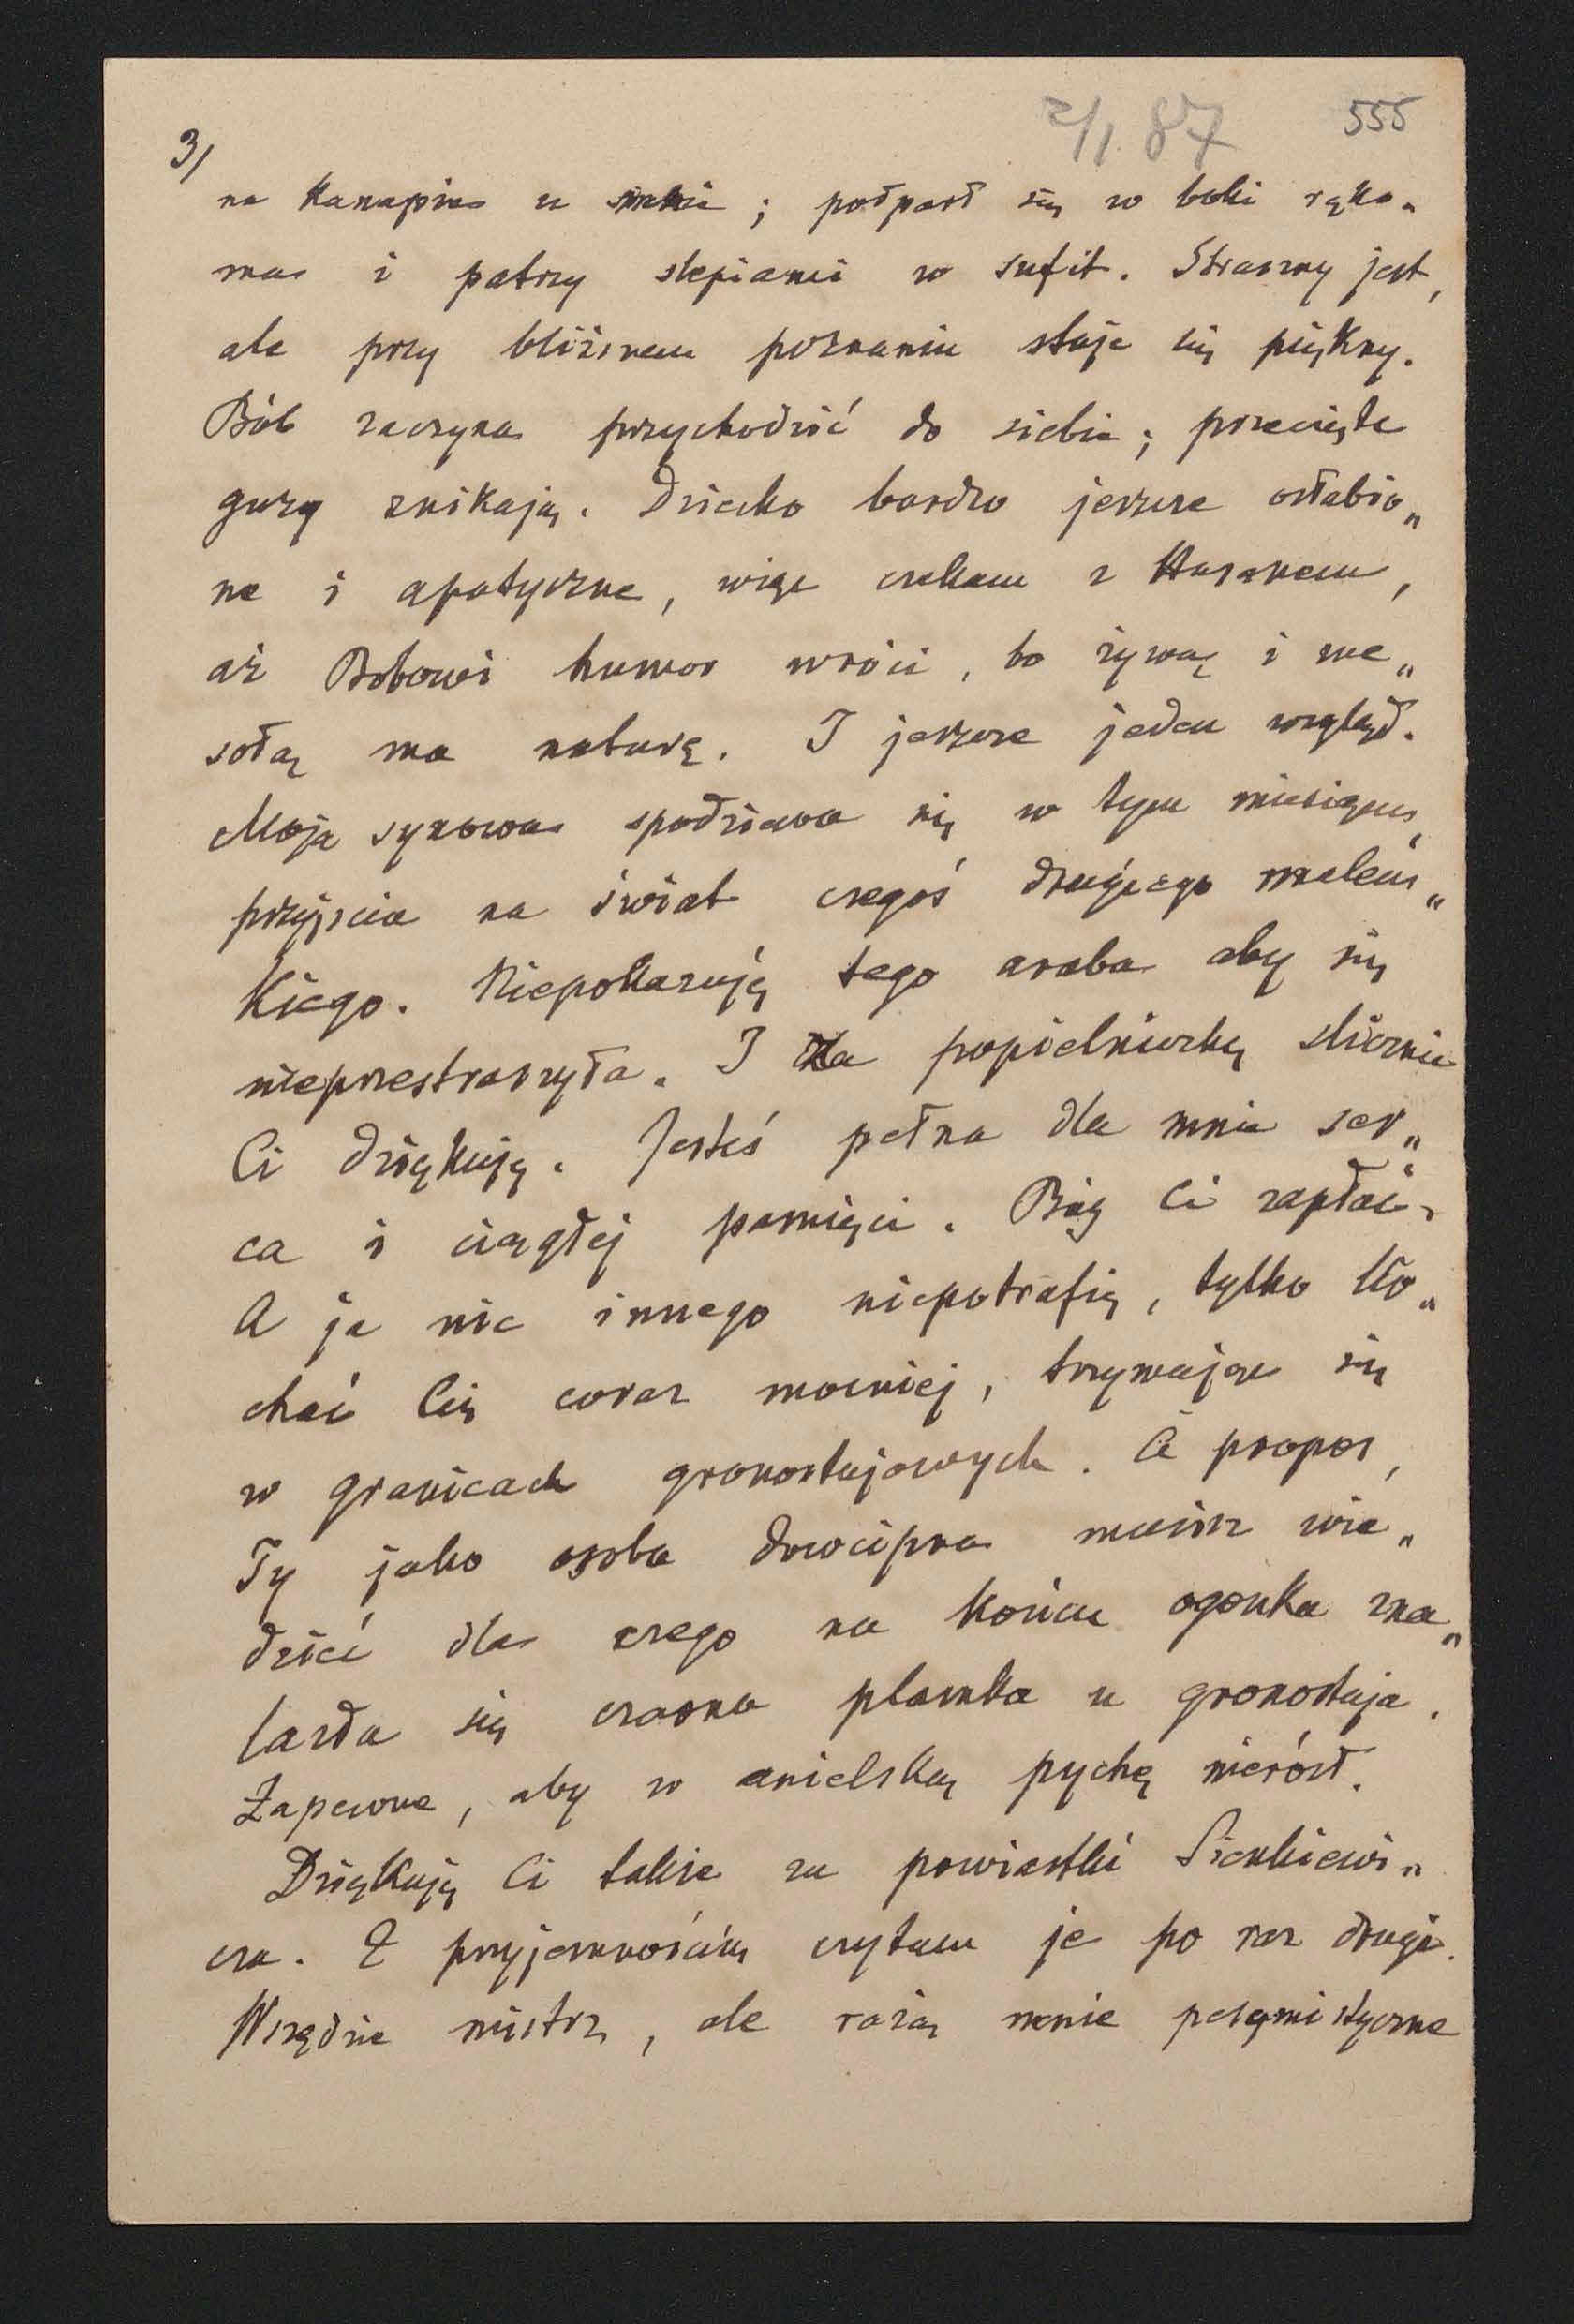 2/1. 87 555
3/
na kanapie u mnie; podparł się w boki ręka„
ma i patrzy ślepiami w sufit. Straszny jest,
ale przy bliższem poznaniu staje się piękny.
Bób zaczyna przychodzić do siebie; przecięte
guzy znikają. Dziecko bardzo jeszcze osłabio„
ne i apatyczne, więc czekam z Hassanem,
aż Bobowi humor wróci, bo żywą i we„
sołą ma naturę. I jeszcze jeden wzgląd.
Moja synowa spodziewa się w tym miesiącu,
przyjścia na świat czegoś drugiego maleń„
kiego. Niepokazuję tego araba aby się
nieprzestraszyła. I za popielniczkę ślicznie
Ci dziękuję. Jesteś pełna dla mnie ser„
ca i ciągłej pamięci. Bóg Ci zapłać.
A ja nic innego niepotrafię, tylko ko„
chać Cię coraz mocniej, trzymając się
w granicach gronostajowych. À propos,
Ty jako osoba dowcipna musisz wie„
dzieć dla czego na końcu ogonka zna„
lazła się czarna plamka u gronostaja.
Zapewne, aby w anielską pychę nierósł.
Dziękuję Ci także za powiastki Sienkiewi„
cza. Z przyjemnością czytam je po raz drugi.
Wszędzie mistrz, ale rażą mnie pesymistyczne